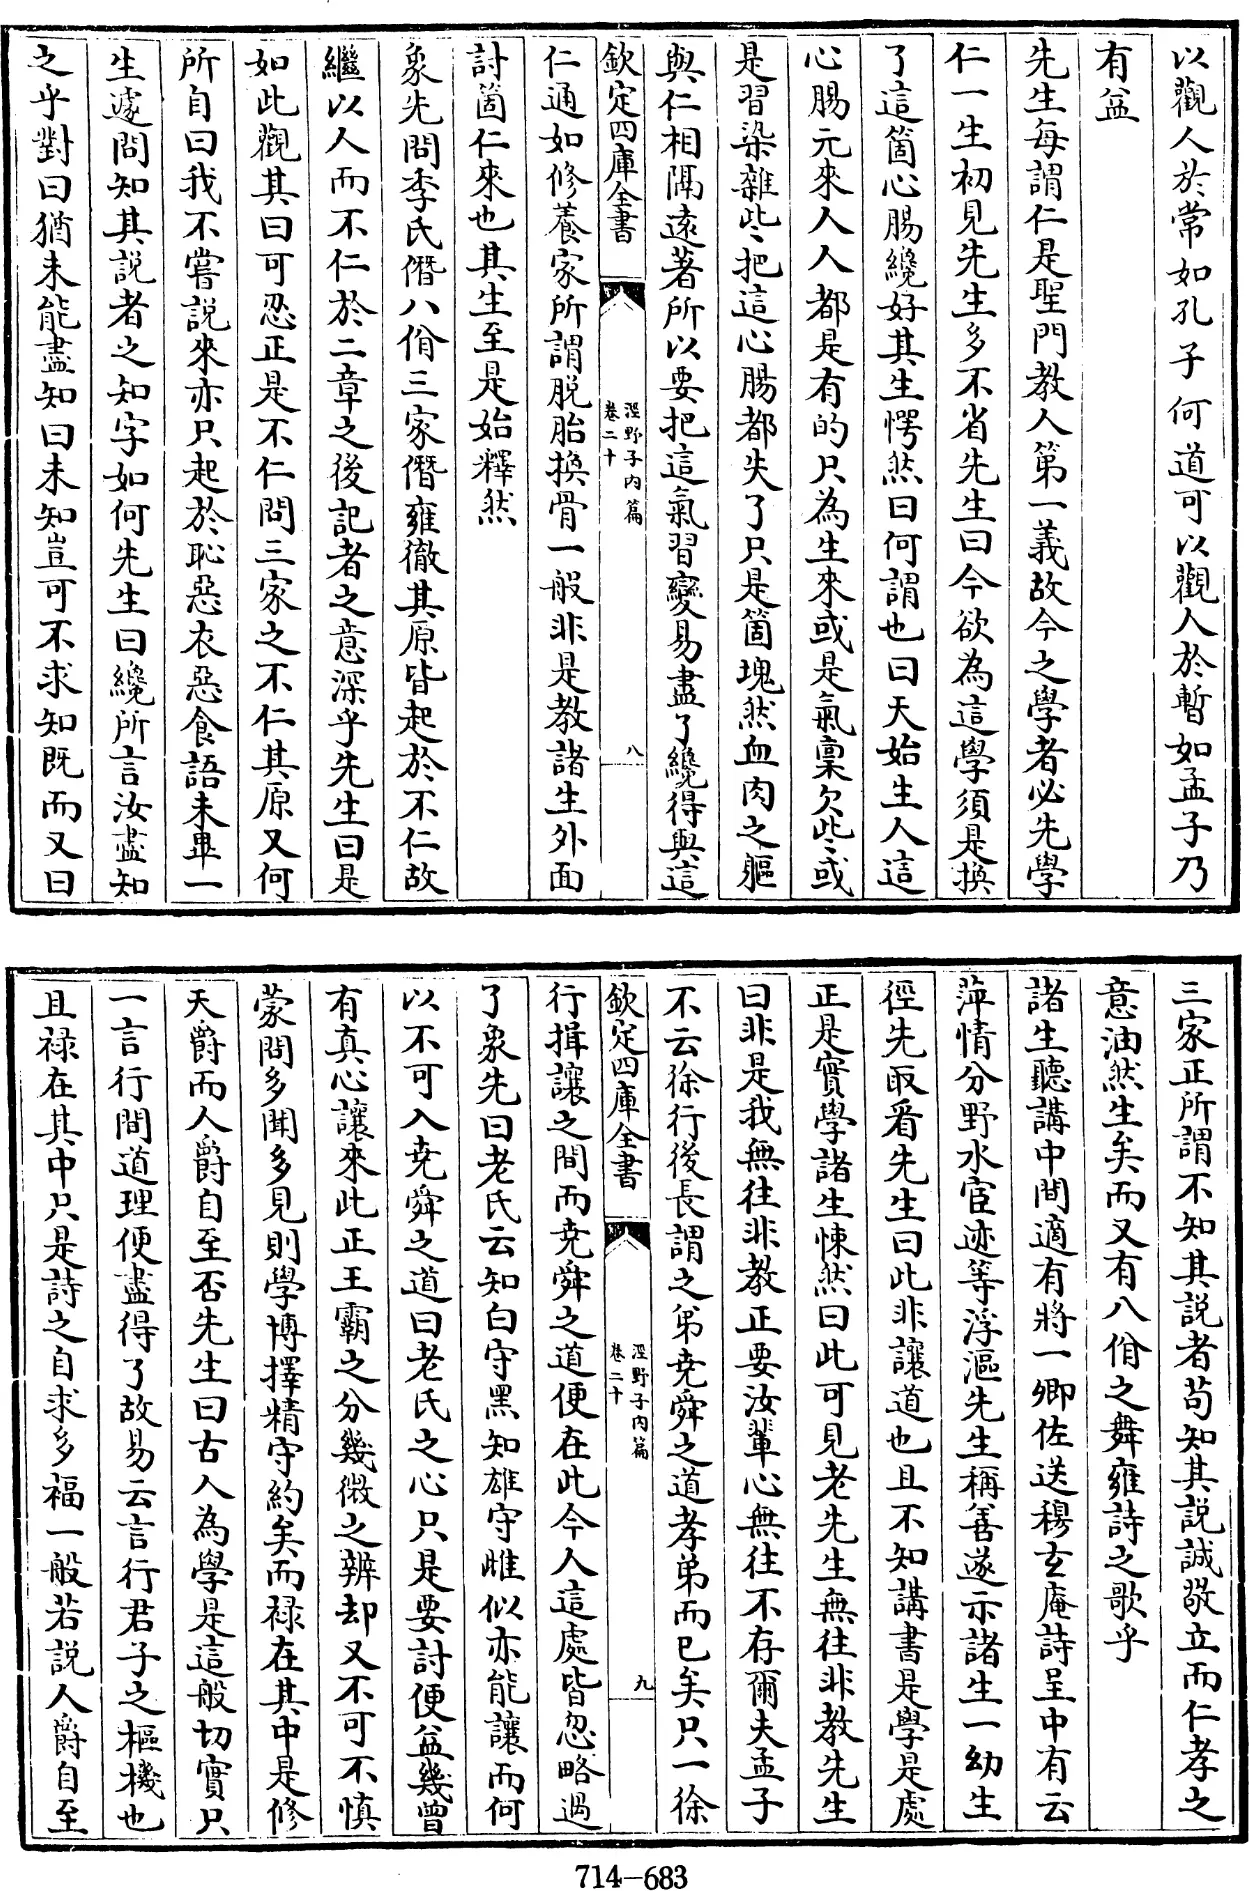 以觀人於常如孔子何道可以觀人於暫如孟子乃
有益
先生每謂仁是聖門教人第一義故今之學者必先學
仁一生初見先生多不省先生曰今欲為這學須是換
了這箇心腸纔好其生愕然曰何謂也曰天始生人這
心腸元來人人都是有的只為生來或是氣稟欠些或
是習染雜些把這心腸都失了只是箇塊然血肉之軀
與仁相隔遠著所以要把這氣習變易盡了纔得與這
欽定四庫全書
涇野子内篇
卷二十
八
仁通如修養家所謂脱胎換骨一般非是教諸生外面
討箇仁來也其生至是始釋然
象先問季氏僭八佾三家僭雍徹其原皆起於不仁故
繼以人而不仁於二章之後記者之意深乎先生曰是
如此觀其曰可忍正是不仁問三家之不仁其原又何
所自曰我不嘗説來亦只起於恥惡衣惡食語未畢一
生遽問知其説者之知字如何先生曰纔所言汝盡知
之乎對曰猶未能盡知曰未知豈可不求知既而又曰
三家正所謂不知其説者苟知其説誠敬立而仁孝之
意油然生矣而又有八佾之舞雍詩之歌乎
諸生聽講中間適有將一卿佐送穆玄庵詩呈中有云
萍情分野水宦迹等浮漚先生稱善遂示諸生一幼生
徑先取看先生曰此非讓道也且不知講書是學是處
正是實學諸生悚然曰此可見老先生無往非教先生
曰非是我無往非教正要汝輩心無往不存爾夫孟子
不云徐行後長謂之弟堯舜之道孝弟而已矣只一徐
欽定四庫全書
涇野子内篇
卷二十
九
行揖讓之間而堯舜之道便在此今人這處皆忽略過
了象先曰老氏云知白守黑知雄守雌似亦能讓而何
以不可入堯舜之道曰老氏之心只是要討便益幾曾
有真心讓來此正王霸之分幾微之辨却又不可不慎
蒙問多聞多見則學博擇精守約矣而禄在其中是修
天爵而人爵自至否先生曰古人為學是這般切實只
一言行間道理便盡得了故易云言行君子之樞機也
且禄在其中只是詩之自求多福一般若説人爵自至
714-683